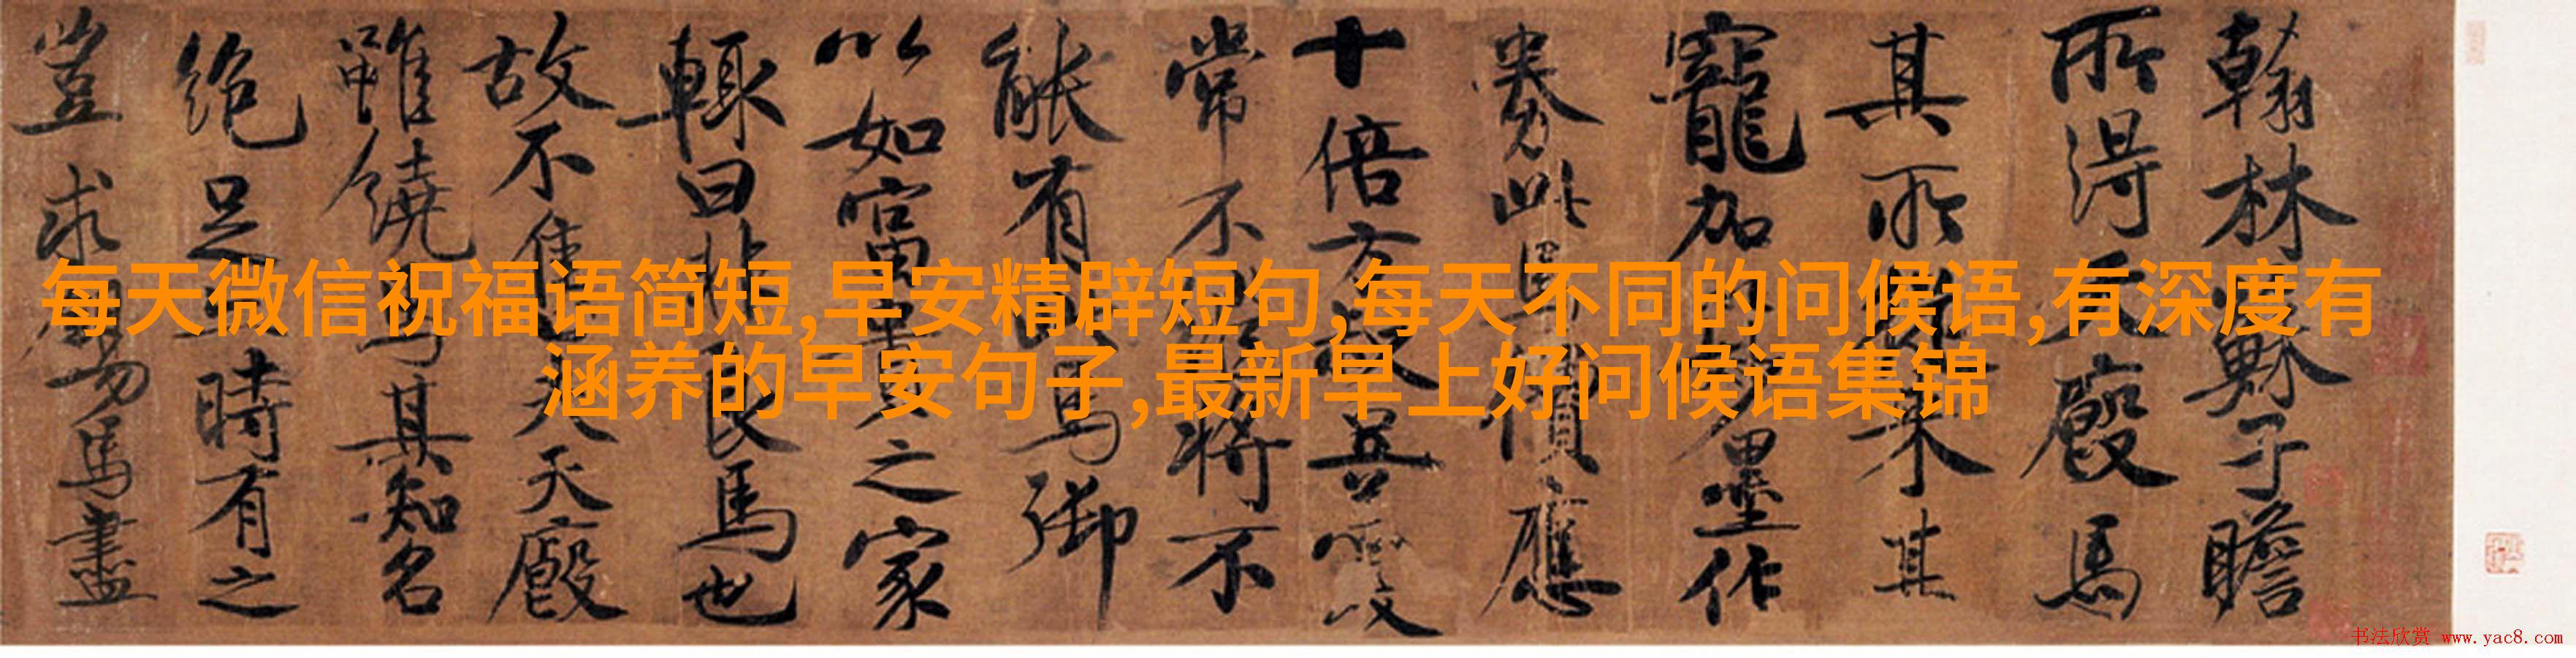 翰林蘇子瞻
所得天廄馬
其所來甚
寵加墨作
券此馬價應
十倍方叔豆羹
常不將不
能有此馬御
以如富之家
輒曰非良馬也
故不售夫天廄
雖饒馬其知名
絕足時有之
豈求馬盡
每天微信祝福语简短,早安精辟短句,每天不同的问候语,有深度有
涵养的早安句子,最新早上好问候语集锦
书法欣赏 www.yac8.com